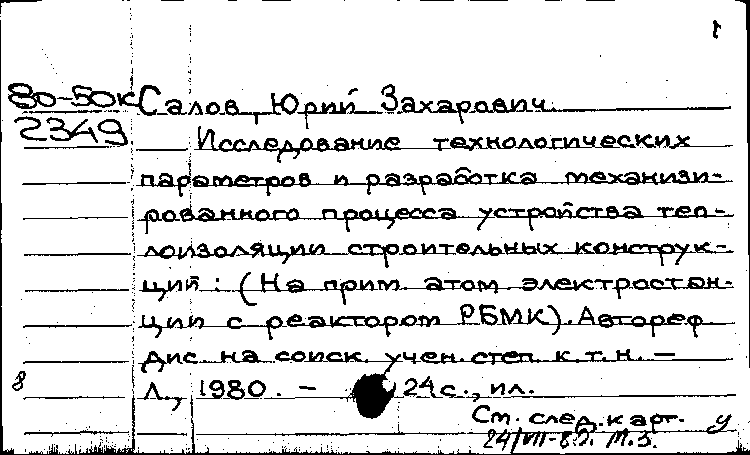 1
80-50к Салов, Юрий Захарович
2349 Исследование технологических
параметров и разработка механизи-
рованного процесса устройства теп-
лоизоляции строительных конструк-
ций : (На прим. атом. электростан-
ции с реактором РБМК). Автореф.
дис. на соиск. учен. степ. к.т.н. —
8 Л., 1980. — 24 с., ил.
См. след. карт. у
24/VII-80. М.З.